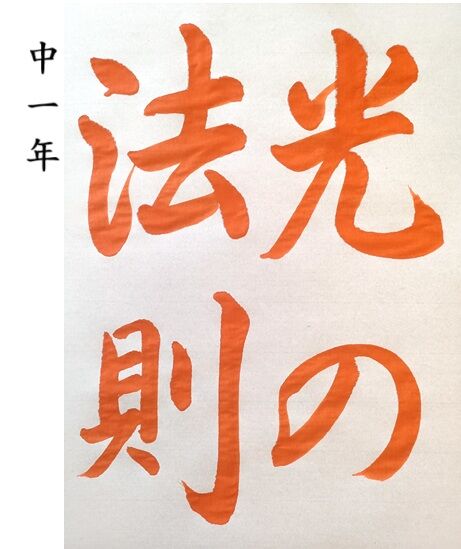 光の
法則
中一年